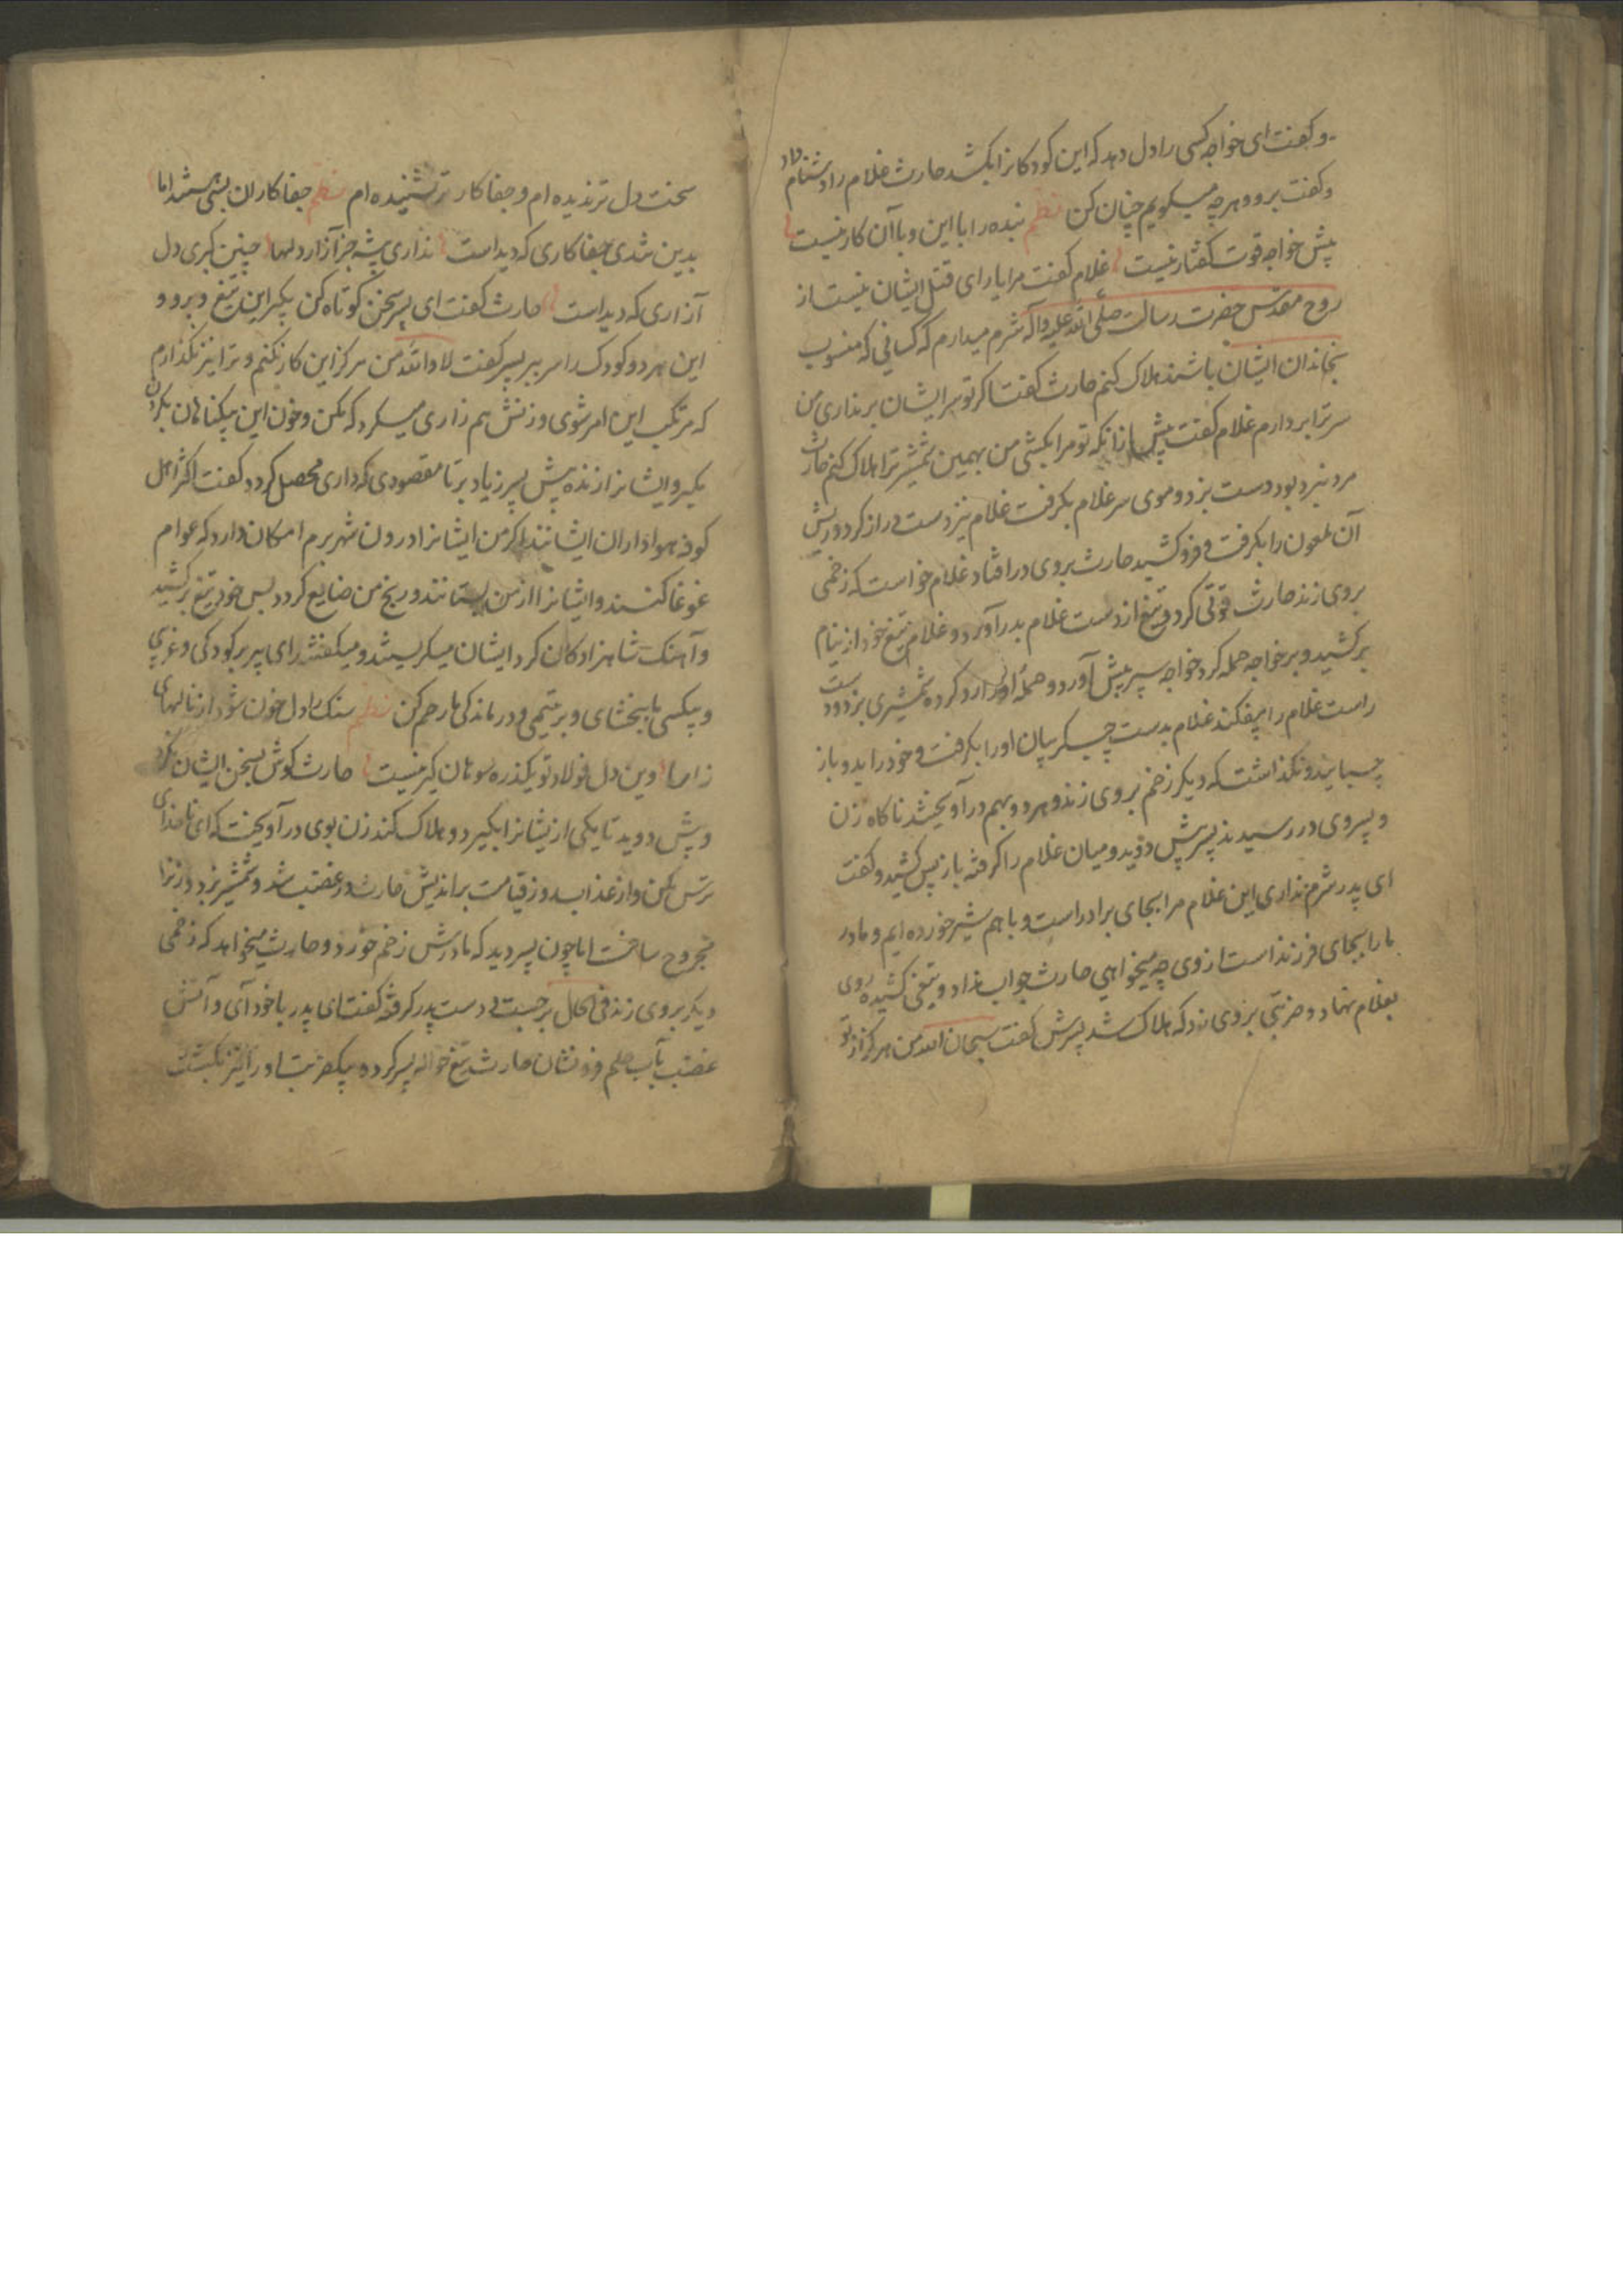 و گفت ای خواجه کسی را دل دهد که این کودکانرا بکشد حارث غلام را دشنام داد
و گفت برو و هر چه میگویم چنان کن نظم بنده را با این و با آن کار نیست
پیش خواجه قوت گفتار نیست غلام گفت مرا یارای قتل ایشان نیست از
روح مقدس حضرت رسالت صلی الله علیه و آله شرم میدارم که کسانی که منسوب
بخاندان ایشان باشند هلاک کنم حارث گفت اکر تو سر ایشان بر نداری من
سر ترا بردارم غلام گفت پیش از آنکه تو مرا بکشی من بهمین شمشیر ترا هلاک کنم حارث
مرد نبرد بود دست بزد و موی سر غلام بگرفت غلام نیز دست دراز کرد و ریش
آن ملعون را بگرفت و فرو کشید حارث بروی در افتاد غلام خواست که زخمی
بروی زند حارث قوتی کرد و تیغ از دست غلام بدر آورد و غلام تیغ خود از نیام
بر کشید و بر خواجه حمله کرد خواجه سپر پیش آورد و حمله او را رد کرده شمشیری بزد و دست
راست غلام را بیفکند غلام بدست چپ گریبان او را بگرفت و خود را بدو باز
چسبانید و نگذاشت که دیگر زخم بروی زند و هر دو بهم در آویختند ناگاه زن
و پسر وی در رسیدند پسرش پیش دوید و میان غلام را گرفته باز پس کشید و گفت
ای پدر شرم نداری این غلام مرا بجای برادر است و با هم شیر خورده ایم و مادر
ما را بجای فرزند است از وی چه میخواهی حارث جواب نداد و تیغی کشیده روی
بغلام نهاد و ضربتی بر وی زد که هلاک شد پسرش گفت سبحان الله من هرگز از تو
سخت دل تر ندیده ام و جفا کار تر نشنیده ام نظم جفا کاران بسی هستند اما
بدین تندی جفا کاری که دید است نداری پیشه جز آزار دلها چنین کبری دل
آزاری که دید است حارث گفت ای پسر سخن کوتاه کن بگیر این تیغ و برو و
این هر دو کودک را سر ببر پسر گفت لا والله من هرگز این کار نکنم و ترا نیز نگذارم
که مرتکب این امر شوی و زنش هم زاری میکرد که مکن و خون این بیگناهان بگردن
مگیر و ایشانرا زنده پیش پسر زیاد بر تا مقصودی که داری محصل گردد گفت اکثر اهل
کوفه هواداران ایشانند اگر من ایشانرا درون شهر برم امکان دارد که عوام
غوغا کنند و ایشانرا از من بستانند و رنج من ضایع گردد پس خود تیغ بر کشید
و آهنگ شاهزادگان کرد ایشان میگریستند و میگفتند ای پیر بر کودکی و غریبی
و بیکسی ما ببخشای و بر یتیمی و درماندگی ما رحم کن نظم سنگ را دل خون شود از نالهای
زار ما وین دل فولاد تو یکذره سوهان گیر نیست حارث گوش بسخن ایشان نکرد
و پیش دوید تا یکی از ایشانرا بگیرد و هلاک کند زن بوی در آویخت که ای ناخدای
ترس مکن و از عذاب روز قیامت بر اندیش حارث در غضب شد و شمشیر بزد و زنرا
مجروح ساخت اما چون پسر دید که مادرش زخم خورد و حارث میخواهد که زخمی
دیگر بروی زند فی الحال بر جست و دست پدر گرفته گفت ای پدر با خود آی و آتش
غضب بآب حلم فرو نشان حارث تیغ حواله پسر کرد و بیکضربت او را نیز بکشت